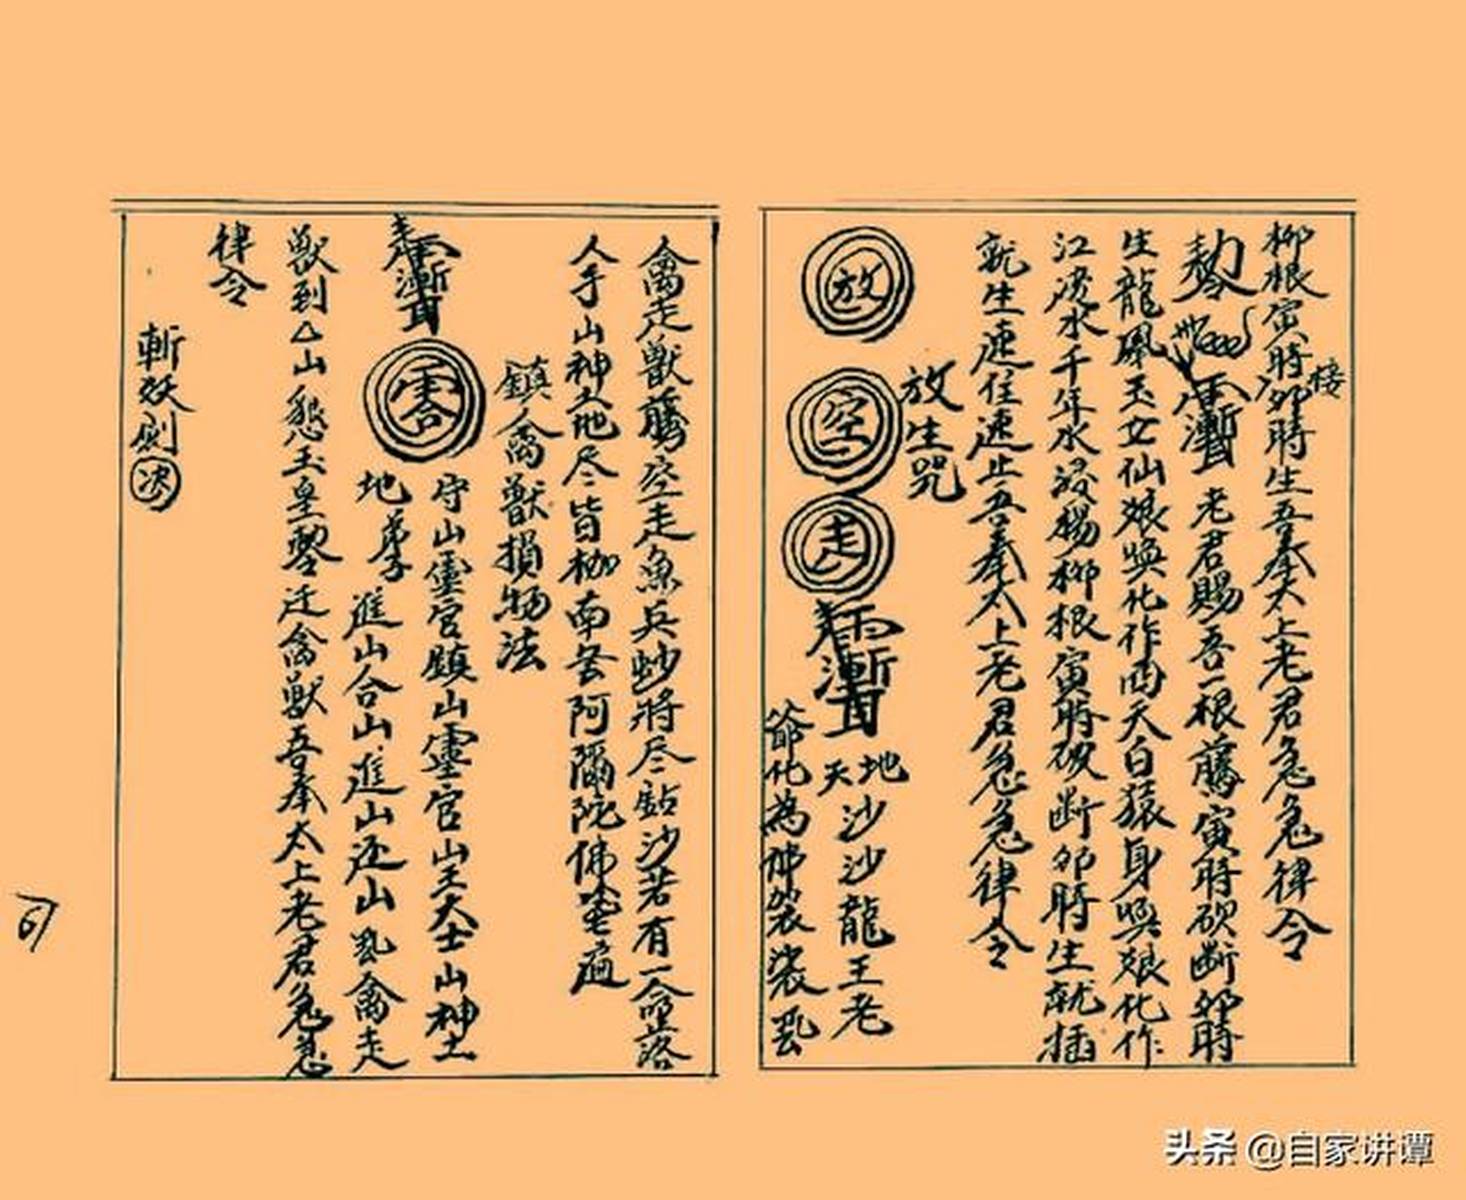 柳根寅時卯時生吾奉太上老君急急律令
接
老君賜吾一根藤寅時砍斷卯時
生龍鳳玉女仙娘喚化作西天白猿身與娘化作
江洗水千年水浸楊柳根寅時砍断卯時生就插
就生速住速止吾奉太上老君急急律令
放生咒
放
空
走
地
天
沙沙龍王老
爺化為佛袈裟
禽走獸藤空走魚兵虾將尽鉆沙若有一个墜落
人手山神土地尽皆枷南無阿彌陀佛
鎮禽獸損物法
守山靈官鎮山靈官山王大士山神土
地弟子進山合山進山还山乱禽走
獸到△山懇玉皇零迁禽獸吾奉太上老君急急
律令
斬妖剑決
头条 @自家讲谭